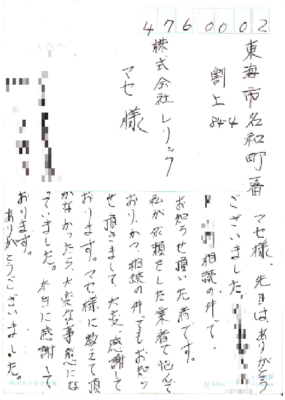 4760002
東海市名和町一番
割上 84-4
株式会社レリック
マセ様
マセ様 先日はありがとう
ございました。
相談の件で、
お知らせ頂いた者です。
私が依頼をした業者で悩んで
おり、かつ、相談の件でもお知ら
せ頂きまして、大変、感謝して
おります。マセ様に教えて頂
かなかったら、大変な事態にな
っていました。本当に感謝して
おります。
ありがとうございました。